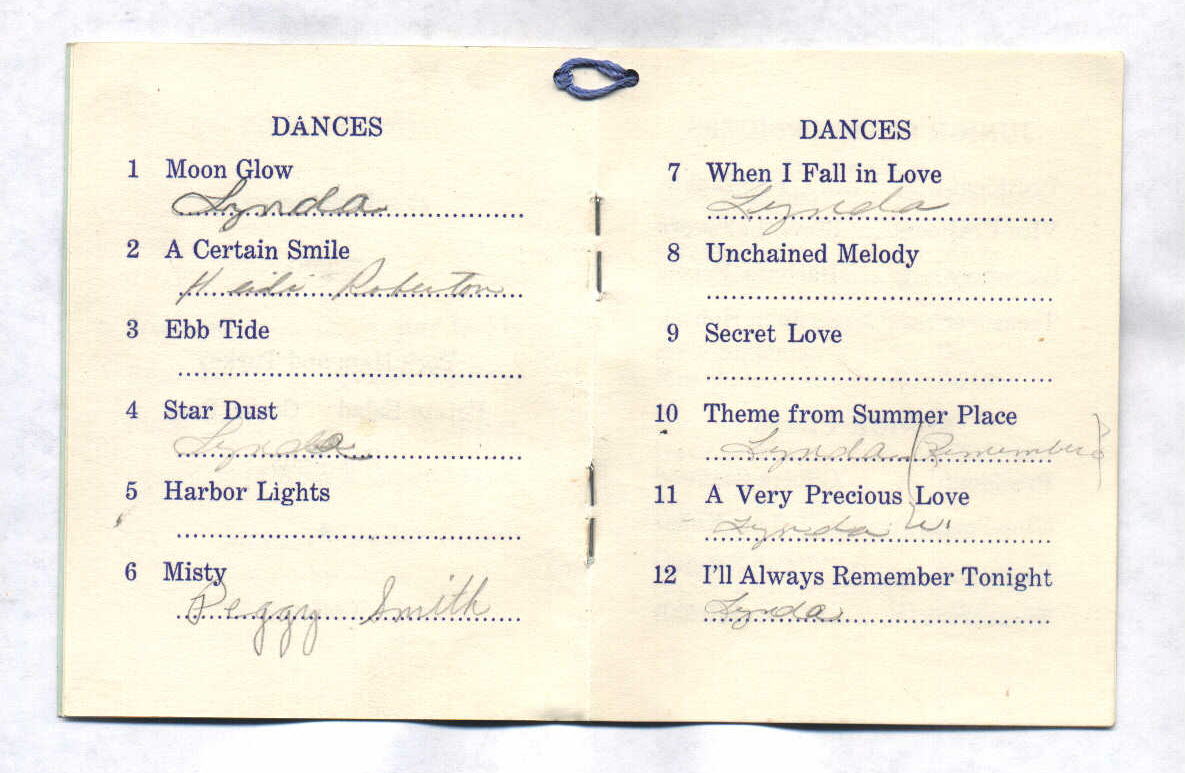 DANCES
1 Moon Glow
Lynda
2 A Certain Smile
Heidi Roberton
3 Ebb Tide
4 Star Dust
Lynda
5 Harbor Lights
6 Misty
Peggy Smith
DANCES
7 When I Fall in Love
Lynda
8 Unchained Melody
9 Secret Love
10 Theme from Summer Place
Lynda (Remember)
11 A Very Precious Love
Lynda W.
12 I'll Always Remember Tonight
Lynda